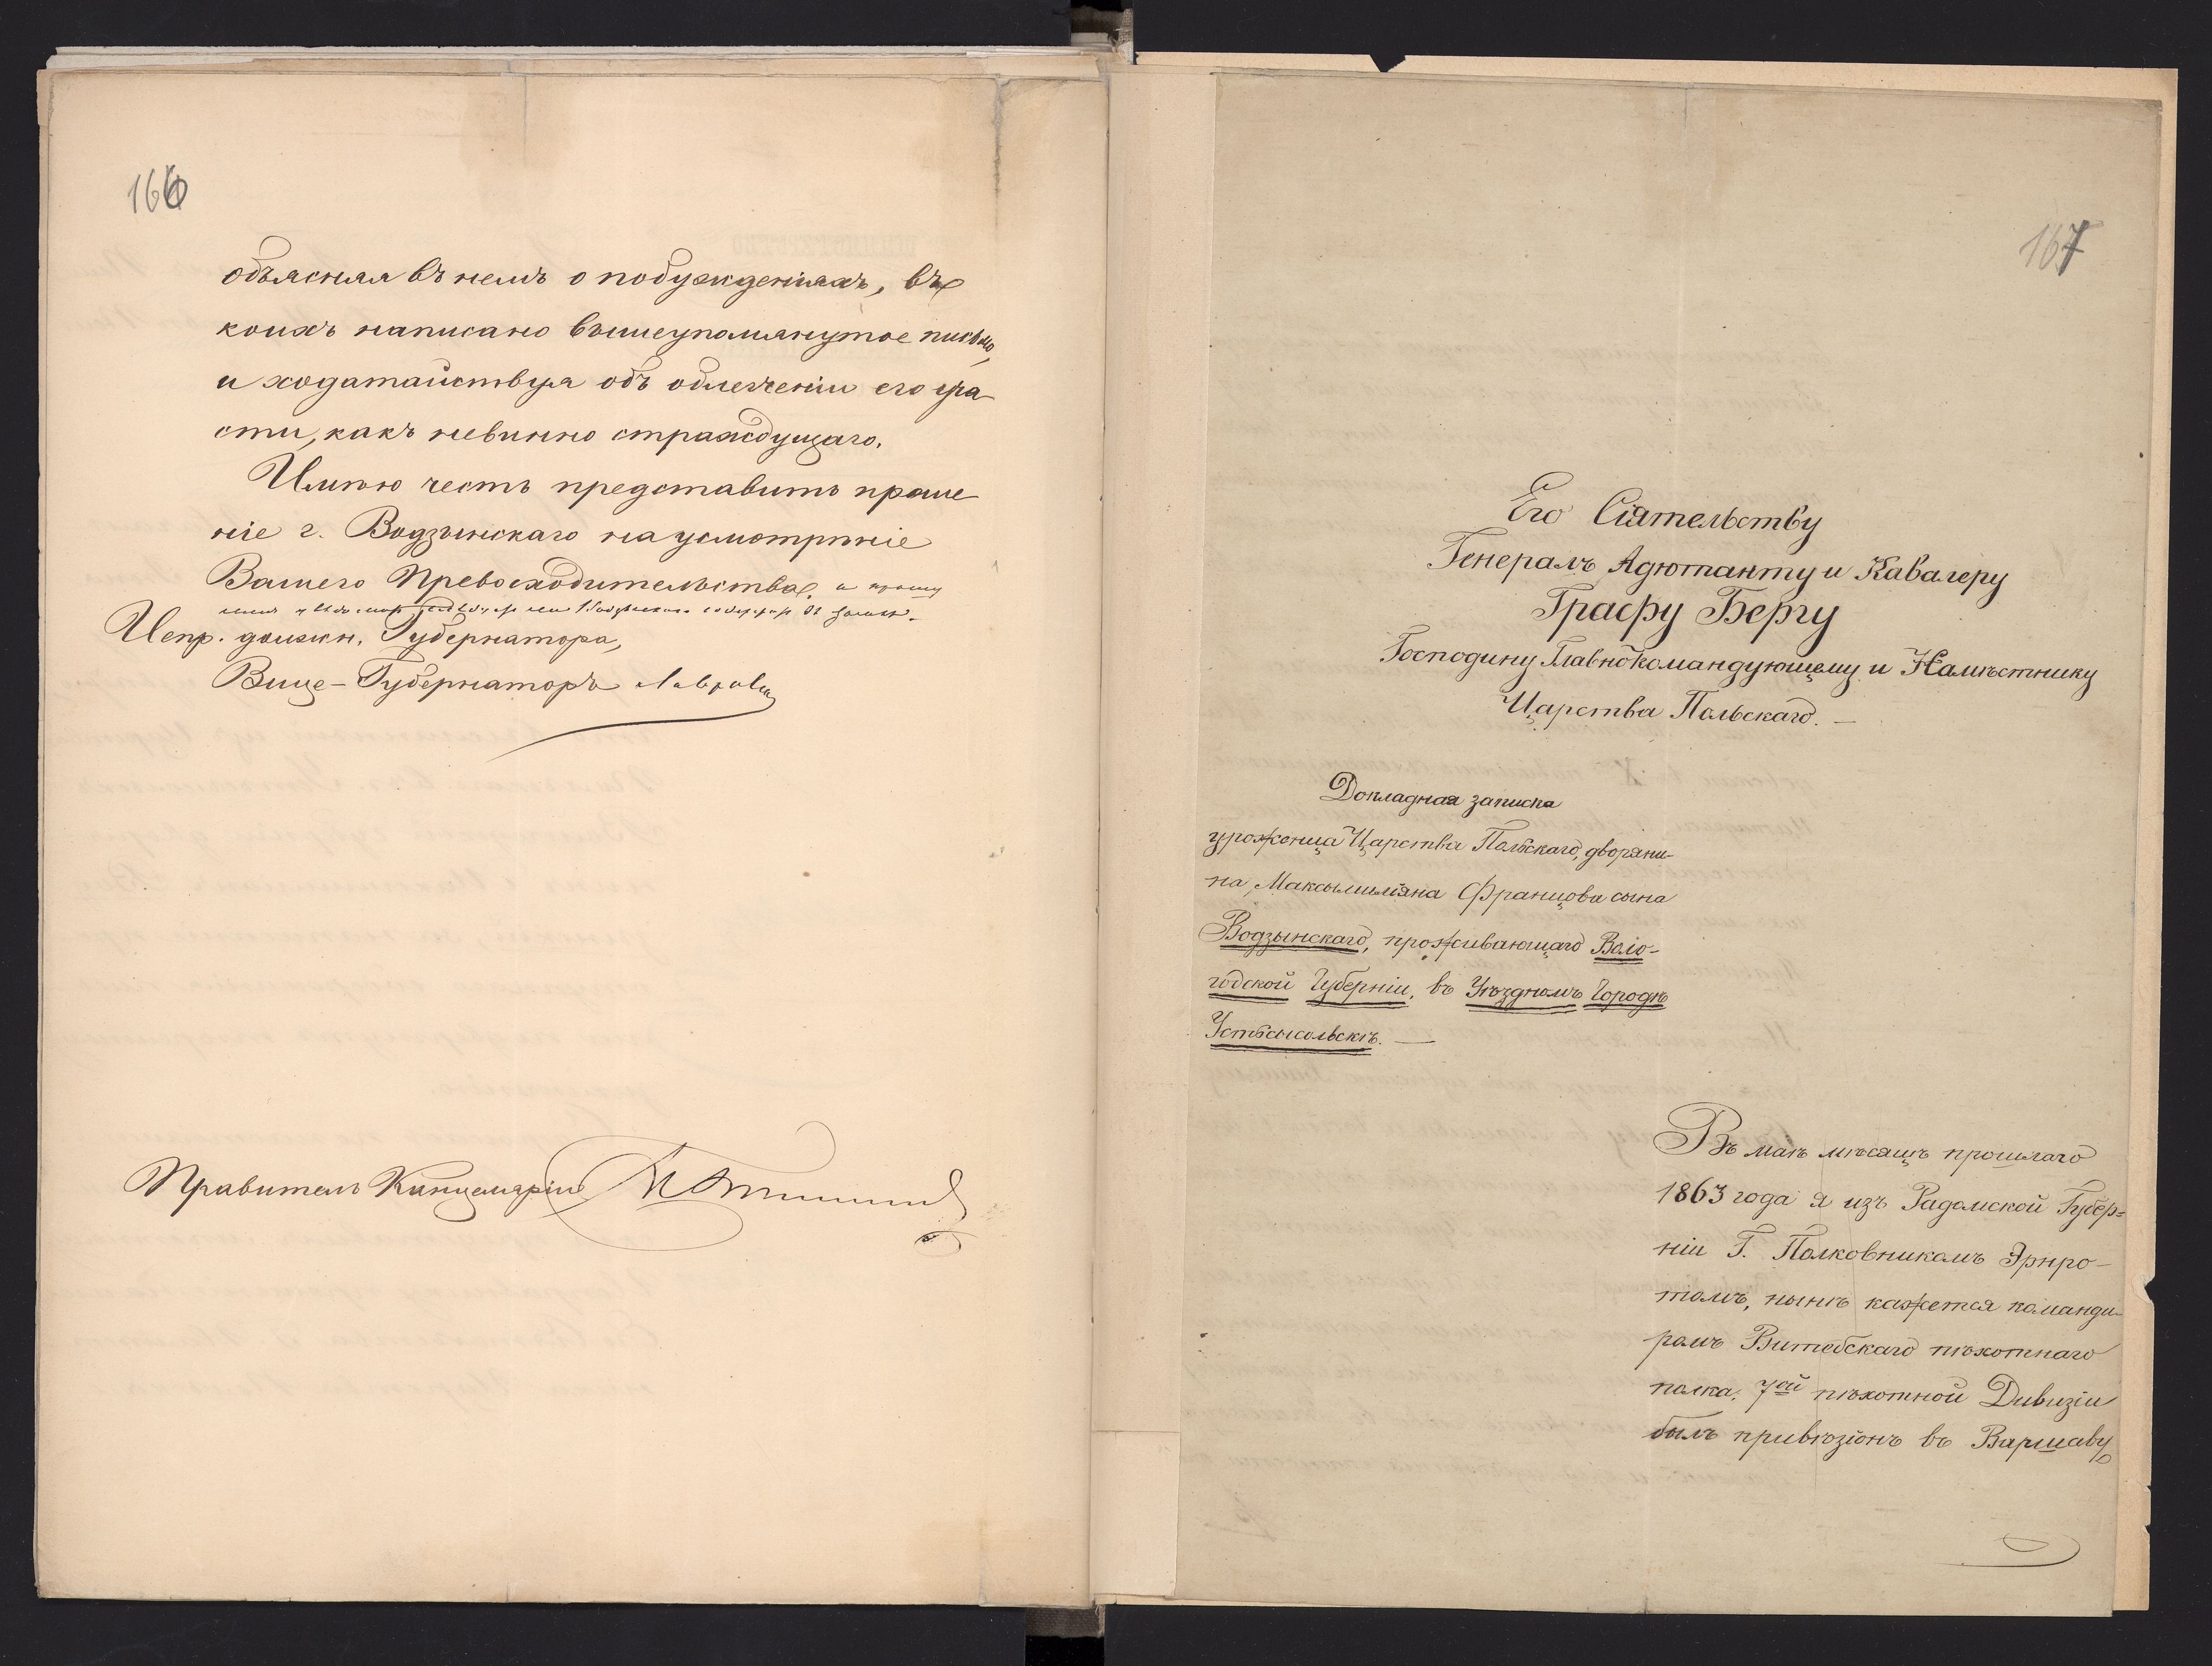 166
объясняя въ немъ о побужденіяхъ, въ
коихъ написано вышеупомянутое письмо,
и ходатайствуя объ облегченіи его уча
сти, какъ невинно страждущаго.
Имѣю честь представить проше
ніе г. Водзынскаго на усмотрѣніе
Вашего Превосходительства, и прошу
Испр. должн. Губернатора,
Вице-Губернаторъ Лавровъ
Правитель Канцеляріи
167
Его Сіятельству
Генералъ Адютанту и Кавалеру
Графу Бергу
Господину Главнокомандующему и Намѣстнику
Царства Польскаго. —
Докладная записка
уроженца Царства Польскаго, дворяни-
на, Максымиліяна Францова сына
Водзынскаго, проживающаго Воло-
годской Губерніи, въ Уѣздномъ Городѣ
Устьсысольскѣ. —
Въ маѣ мѣсяцѣ прошлаго
1863 года я изъ Радомской Губер=
ніи Г. Полковникомъ Эрнро-
томъ, нынѣ кажется команди-
ромъ Витебскаго пѣхотнаго
полка, 7ой пѣхотной Дивизіи
былъ привѣзіонъ въ Варшаву